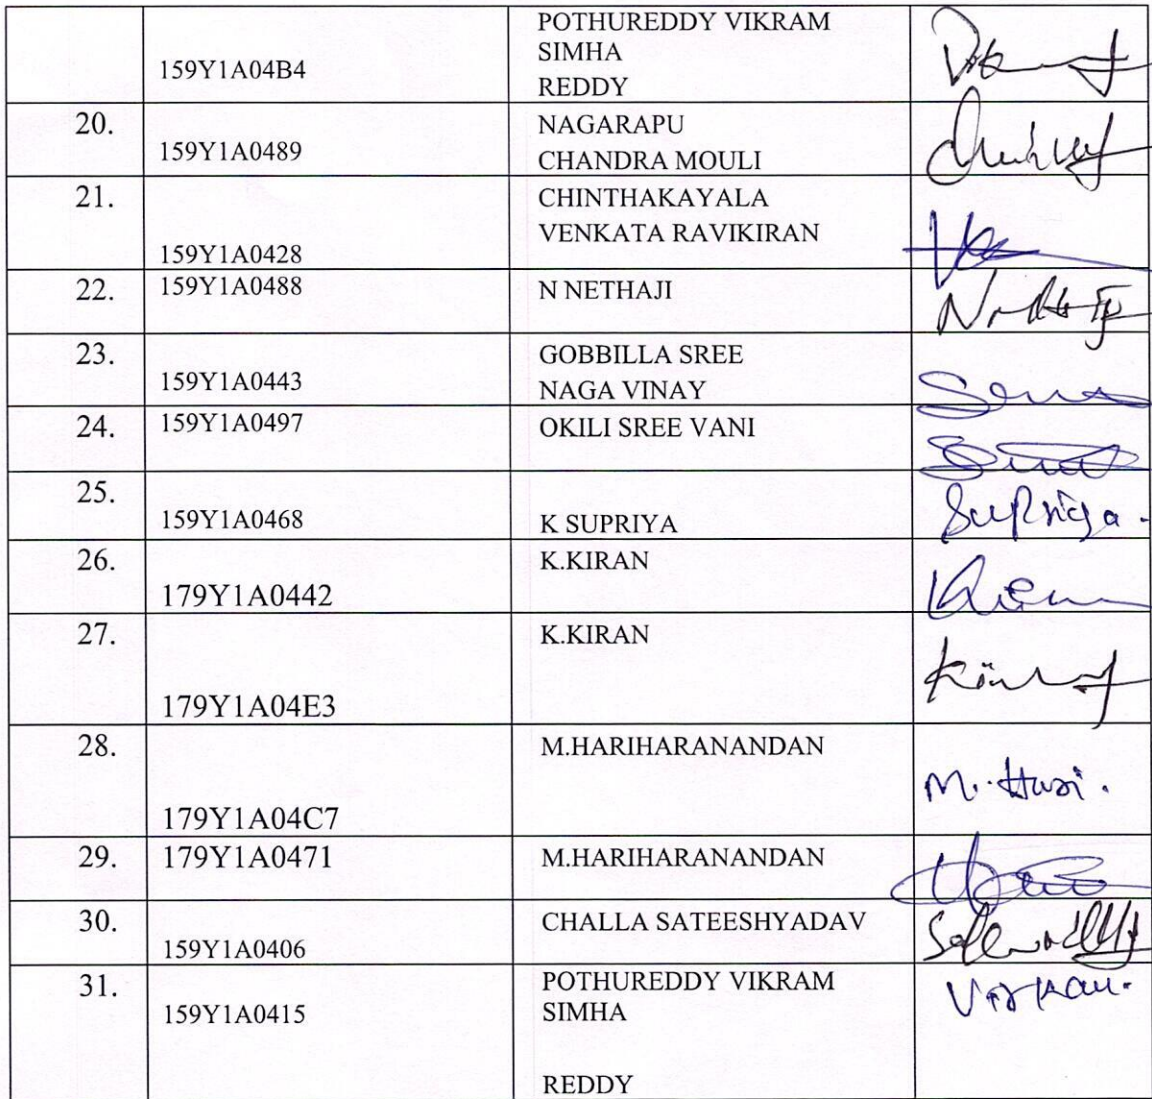 159Y1A04B4 POTHUREDDY VIKRAM
SIMHA
REDDY
20. 159Y1A0489 NAGARAPU
CHANDRA MOULI
21. 159Y1A0428 CHINTHAKAYALA
VENKATA RAVIKIRAN
22. 159Y1A0488 N NETHAJI
23. 159Y1A0443 GOBBILLA SREE
NAGA VINAY
24. 159Y1A0497 OKILI SREE VANI
25. 159Y1A0468 K SUPRIYA Supriya.
26. 179Y1A0442 K.KIRAN
27. 179Y1A04E3 K.KIRAN
28. 179Y1A04C7 M.HARIHARANANDAN M. Hari.
29. 179Y1A0471 M.HARIHARANANDAN
30. 159Y1A0406 CHALLA SATEESHYADAV
31. 159Y1A0415 POTHUREDDY VIKRAM
SIMHA
REDDY